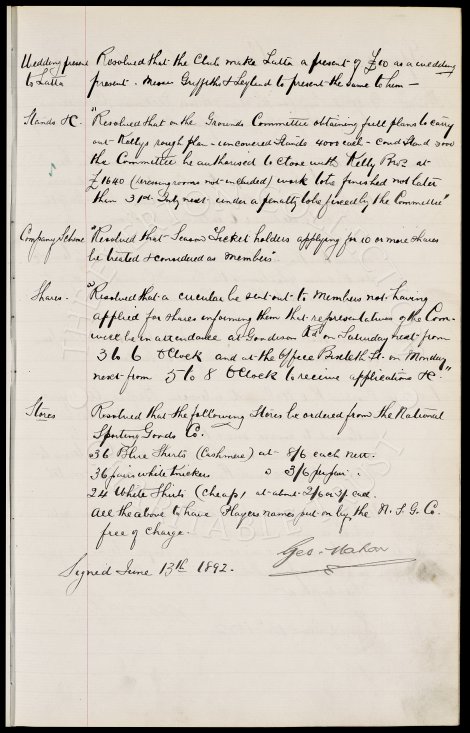 Wedding present Resolved that the Club make Latta a present of £10 as a wedding
to Latta present. Messrs Griffiths & Leyland to present the same to him —
Stands &c "Resolved that on the Grounds Committee obtaining full plans to carry
out Kellys rough plan - uncovered Stands 4000 each - cov'd Stand 3000
the Committee be authorised to close with Kelly Bros at
£1640 (dressing rooms not included) work to be finished not later
than 31st July next under a penalty to be fixed by the Committee"
Company Scheme "Resolved that Season Ticket holders applying for 10 or more shares
be treated & considered as members"
Shares. "Resolved that a circular be sent out to members not having
applied for shares informing them that representatives of the Com
will be in attendance at Goodison Rd on Saturday next from
3 to 6 O'Clock and at the Office Brisbth St. on Monday
next from 5 to 8 O'Clock to receive applications &c"
Stores Resolved that the following Stores be ordered from the National
Sporting Goods Co.
36 Shirts (Cashmere) at 8/6 each nett.
36 pairs white knickers " 3/6 per pair.
24 White Shirts (Cheap) at about 2/6 or 3/ each.
All the above to have Players names put on by the N. S. G. Co.
free of charge.
Geo. Mahon
Signed June 13th 1892.